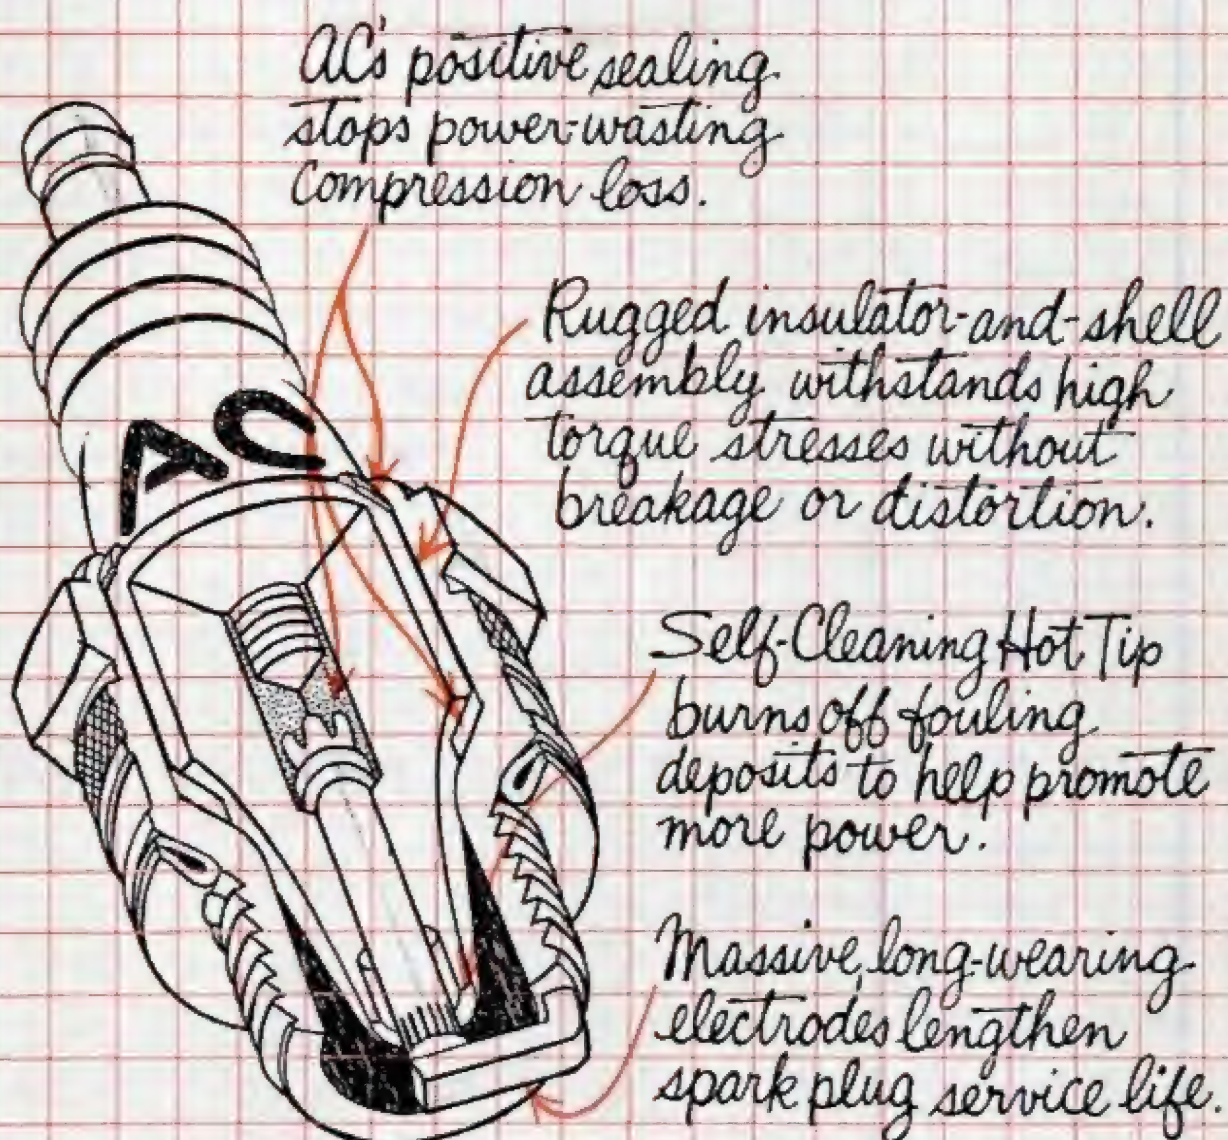 AC's positive sealing
stops power-wasting
Compression loss.
Rugged insulator-and-shell
assembly withstands high
torque stresses without
breakage or distortion.
AC
Self-Cleaning Hot Tip
burns off fouling
deposits to help promote
more power.
Massive, long-wearing
electrodes lengthen
spark plug service life.